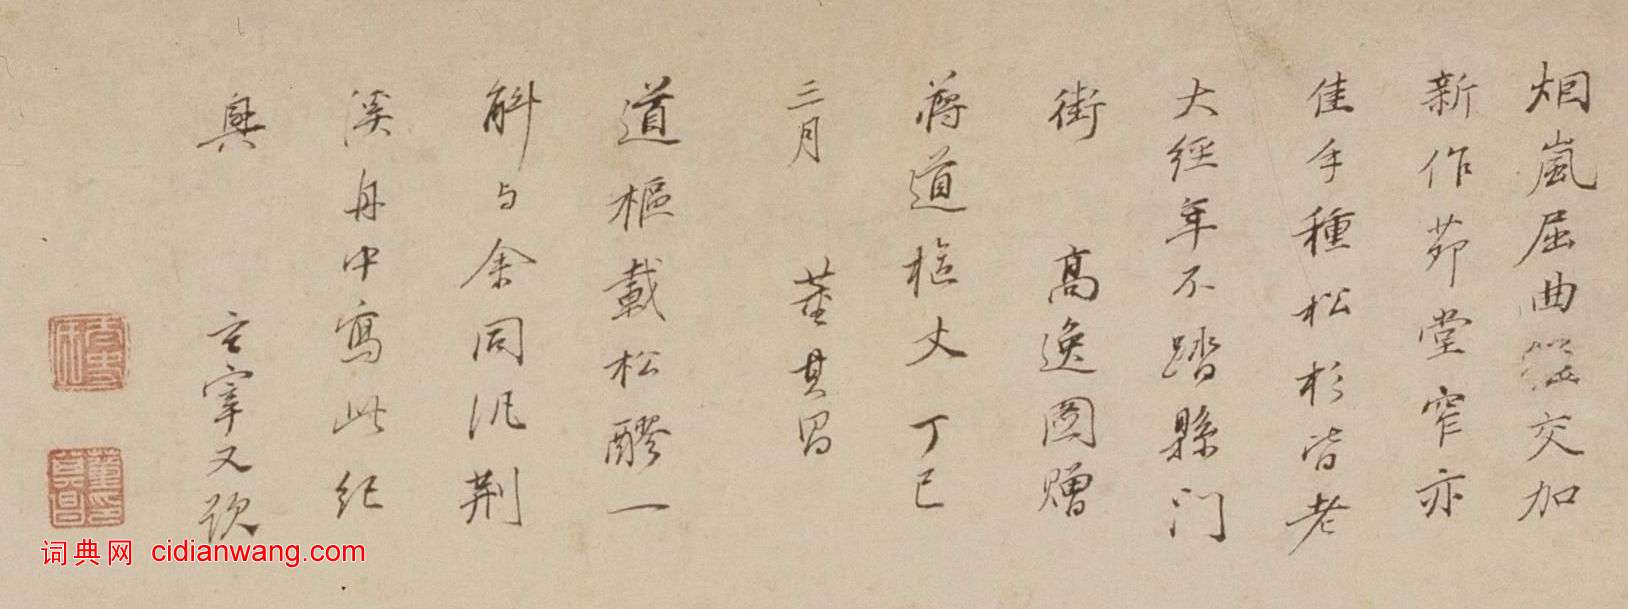 烟嵐屈曲交加
新作茆堂窄亦
佳手種松杉皆老
大經年不踏縣门
街 高逸图赠
蒋道樞丈丁巳
三月 董其昌
道樞載松醪一
斛与余同汎荆
溪舟中寫此紀
興 玄宰又題
董其昌印
词典网 cidianwang.com